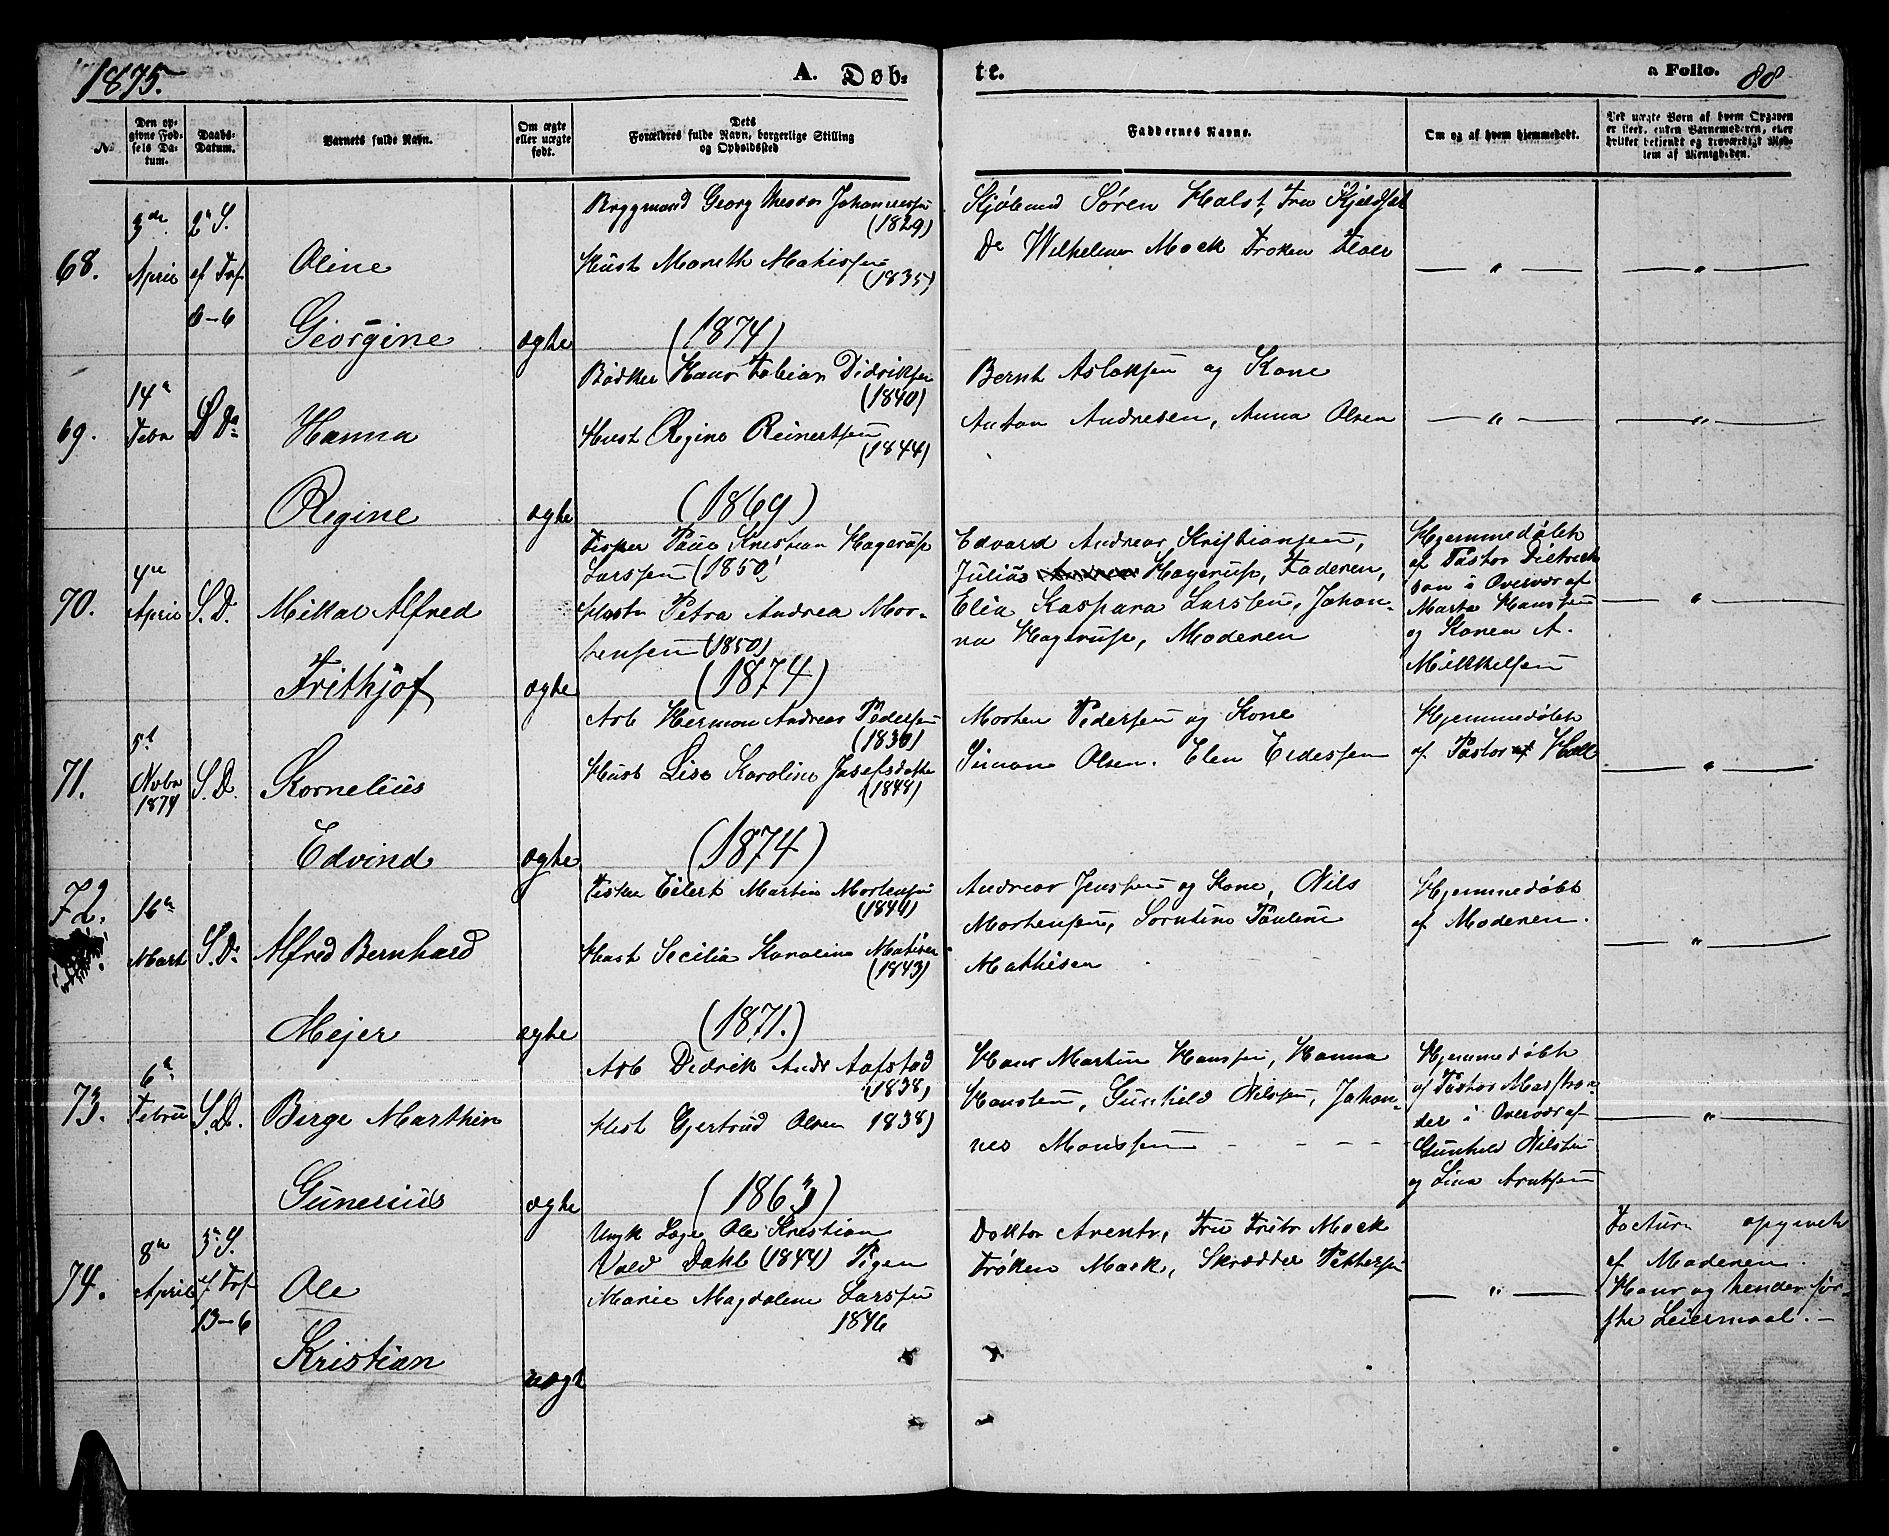 1875.
A. Døb-
te.
a Folio. 88
No
Den op-
givne Fød-
sels Da-
tum.
Daabs-
Datum.
Barnets fulde Navn.
Om ægte
eller uægte
født.
Dets
Forældres fulde Navn, borgerlige Stilling
og Opholdssted
Faddernes Navne.
Om og af hvem hjemmedøbt.
Ved uægte Børn af hvem Opgaven
er skeet, enten Barnemoderen, eller
hvilket bekjendt og troværdigt Med-
lem af Menigheden.
68.
3de
April
2n S.
ef Trf
6-6
Oline
Georgine
ægte
Bryggmand Georg Johannessen
(1829)
Hust Mareth Mathissen
(1835)
(1874)
Søren Holst, Fru
De Wilhelm Mack Frøken
— " —
— " —
69.
14n
Febr
S. Do
Hanna
Regine
ægte
Bødker Hans Tobias Didriksen
(1840)
Hust Regine Reinertsen
(1844)
(1869)
Bernt Aslaksen og Kone
Anton Andresen, Anna Olsen
— " —
— " —
70.
4de
April
S. D.
Mikal Alfred
Frithjof
ægte
Fisker Paul Kristian Hagerup
Larssen (1850)
Hustr Petra Andrea Mor-
tensen (1850)
(1874)
Edvard Andreas Kristiansen,
Julius Hagerup, Faderen,
Elia Kaspara Larsen, Johan-
na Hagerup, Moderen
Hjemmedøbt
af Pastor Dietrich
son i Overvær af
Marta Hansen
og Konen A.
Mikkelsen
— " —
71.
5t
Novbr
1874
S. D.
Kornelius
Edvind
ægte
Arb Herman Andreas Pedersen
(1830)
Hust Lisa Karoline Josefsdatter
(1848)
(1874)
Morten Pedersen og Kone
Simon Olsen. Elen Erdessen
Hjemmedøbt
af Pastor Hall
— " —
72.
16n
Mart
S. Do
Alfred Bernhard
Mejer
ægte
Fisker Eilert Martin Mortensen
(1844)
Hust Secilia Karoline Mathisen
(1843)
(1871.)
Andreas Jenssen og Kone, Nils
Mortensen, Paulene
Mathisen
Hjemmedøbt
af Moderen.
— " —
73.
6n
Februr
S. D.
Birge Marthin
Gunerius
ægte
Arb Didrik Andr Aafstad
(1838)
Hust Gjertrud Olsen 1838)
(1863)
Hans Martin Hanssen, Hanna
Hansen, Gunhild Nilssen, Johan-
nes Monssen - - - -
Hjemmedøbt
af Pastor Marstran-
der i Overvær af
Gunhild Nilsen
og Lina Arntsen
— " —
74.
8n
April
3n S.
ef Trf
13-6
Ole
Kristian
uægte
Ungk Læge Ole Kristian
Vold Dahl (1844) Pigen
Marie Magdalene Larssen
1846
Doktor Arentz, Fru Fritz Mack
Frøken Mack, Skrædder Pettersen
— " —
Factum opgivet
af Moderen.
Hans og hendes før-
ste Leiermaal. —